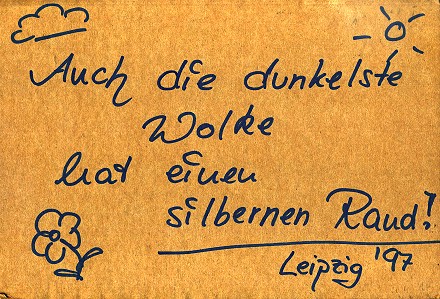 Auch die dunkelste
Wolke
hat einen
silbernen Rand!
Leipzig '97